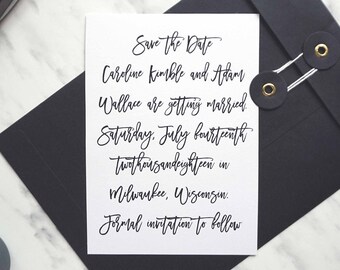 Save the Date
Caroline Kimble and Adam
Wallace are getting married
Saturday, July fourteenth
twothousandeighteen in
Milwaukee, Wisconsin.
Formal invitation to follow